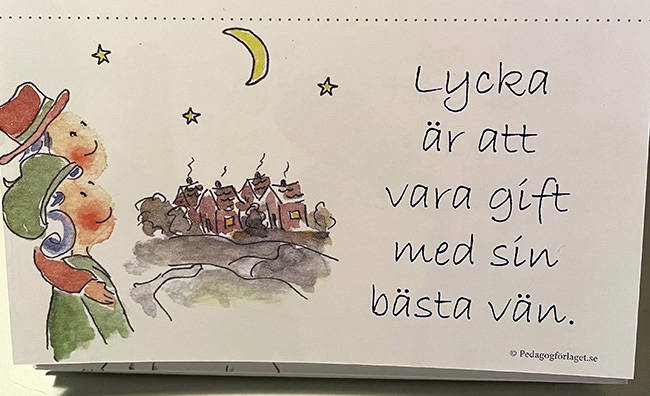 Lycka
är att
vara gift
med sin
bästa vän.
© Pedagogförlaget.se